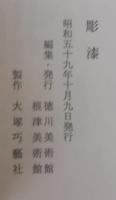 彫漆
昭和五十九年十月九日発行
編集・発行 徳川美術館
根津美術館
製作 大塚巧藝社